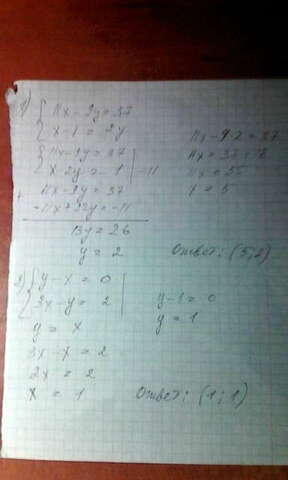 1) { 11x - 9y = 37
x - 1 = 2y
{ 11x - 9y = 37
x - 2y = 1 | -11
+ 11x - 9y = 37
-11x + 22y = -11
13y = 26
y = 2
11x - 9·2 = 37
11x = 37 + 18
11x = 55
x = 5
Ответ: (5; 2)
2) { y - x = 0
3x - y = 2
y = x
3x - x = 2
2x = 2
x = 1
y - 1 = 0
y = 1
Ответ: (1; 1)